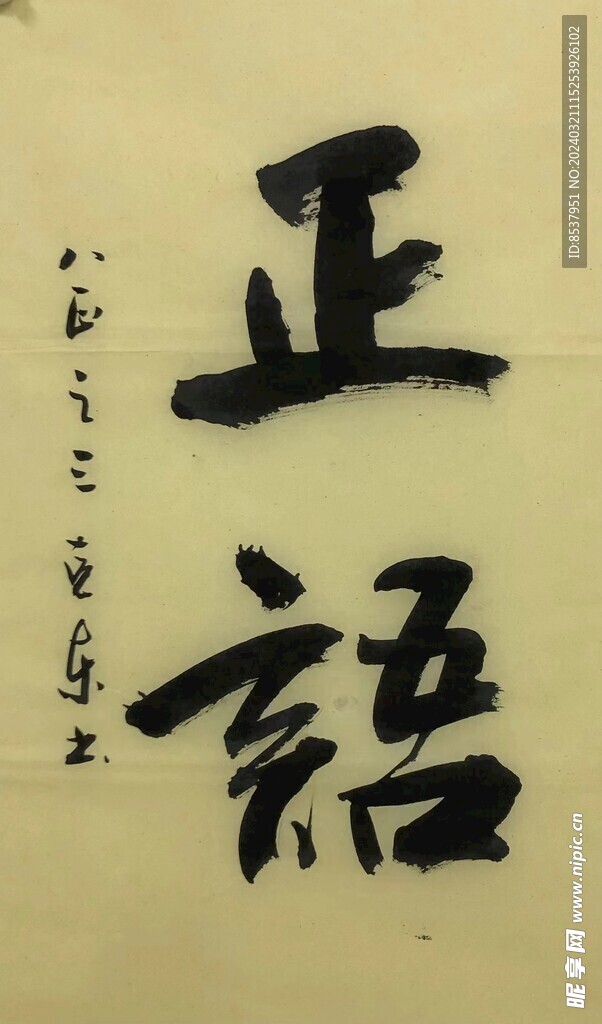 正語
八正之三 克東书
ID:8537951 NO:20240321115253926102
昵享网 www.nipic.cn